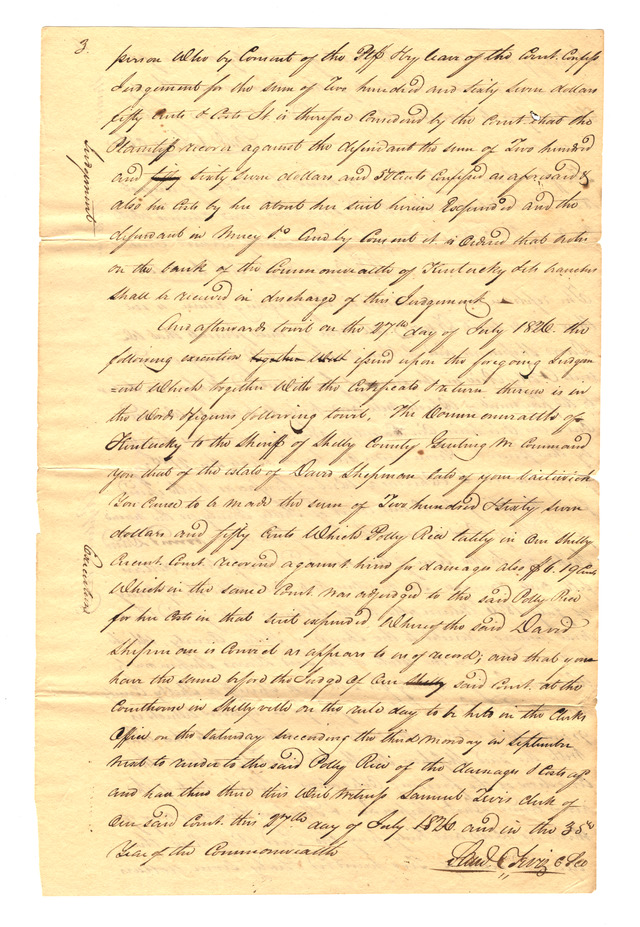 3.
person who by Consent of the Plff & by leave of the Court. Confess
Judgement for the sum of Two hundred and Sixty Seven dollars
fifty Cents & Costs It is therefore Considered by the Court that the
Plaintiff recover against the defendant the sum of Two hundred
Judgment
and fifty Sixty Seven dollars and 50 Cents Confessed as aforesaid &
also her Costs by her about her suit herein Expended and the
defendant in Mercy &c And by Consent it is Ordered that notes
on the bank of the Commonwealth of Kentucky & its branches
shall be received in discharge of this Judgement
And afterwards towit on the 27th day of July 1826 the
following execution together with issued upon the foregoing Judgm
=ent Which together With the Certificate & return thereon is in
the Words & figures following towit, The Commonwealth of
Kentucky to the Sheriff of Shelby County Greeting We Command
you that of the estate of David Shipman late of your bailiwick
You Cause to be made the sum of Two hundred & sixty seven
dollars and fifty Cents Which Polly Rice lately in Our Shelby
Execution
Circuit Court recovered against him for damages also $6.19 Cents
Which in the same Court was adjudged to the said Polly Rice
for her Costs in that suit expended Whereof the said David
Shipman is Convict as appears to us of record; and that you
have the same before the Judge of Our Shelby said Court at the
Courthouse in Shelbyville on the rule day to be held in the Clerks
Office on the Saturday succeeding the third Monday in September
next to render to the said Polly Rice of the damages & Costs afs
and have then there this Writ Witness Samuel Tevis Clerk of
Our said Court this 27th day of July 1826 and in the 35th
Year of the Commonwealth
Saml. Tevis